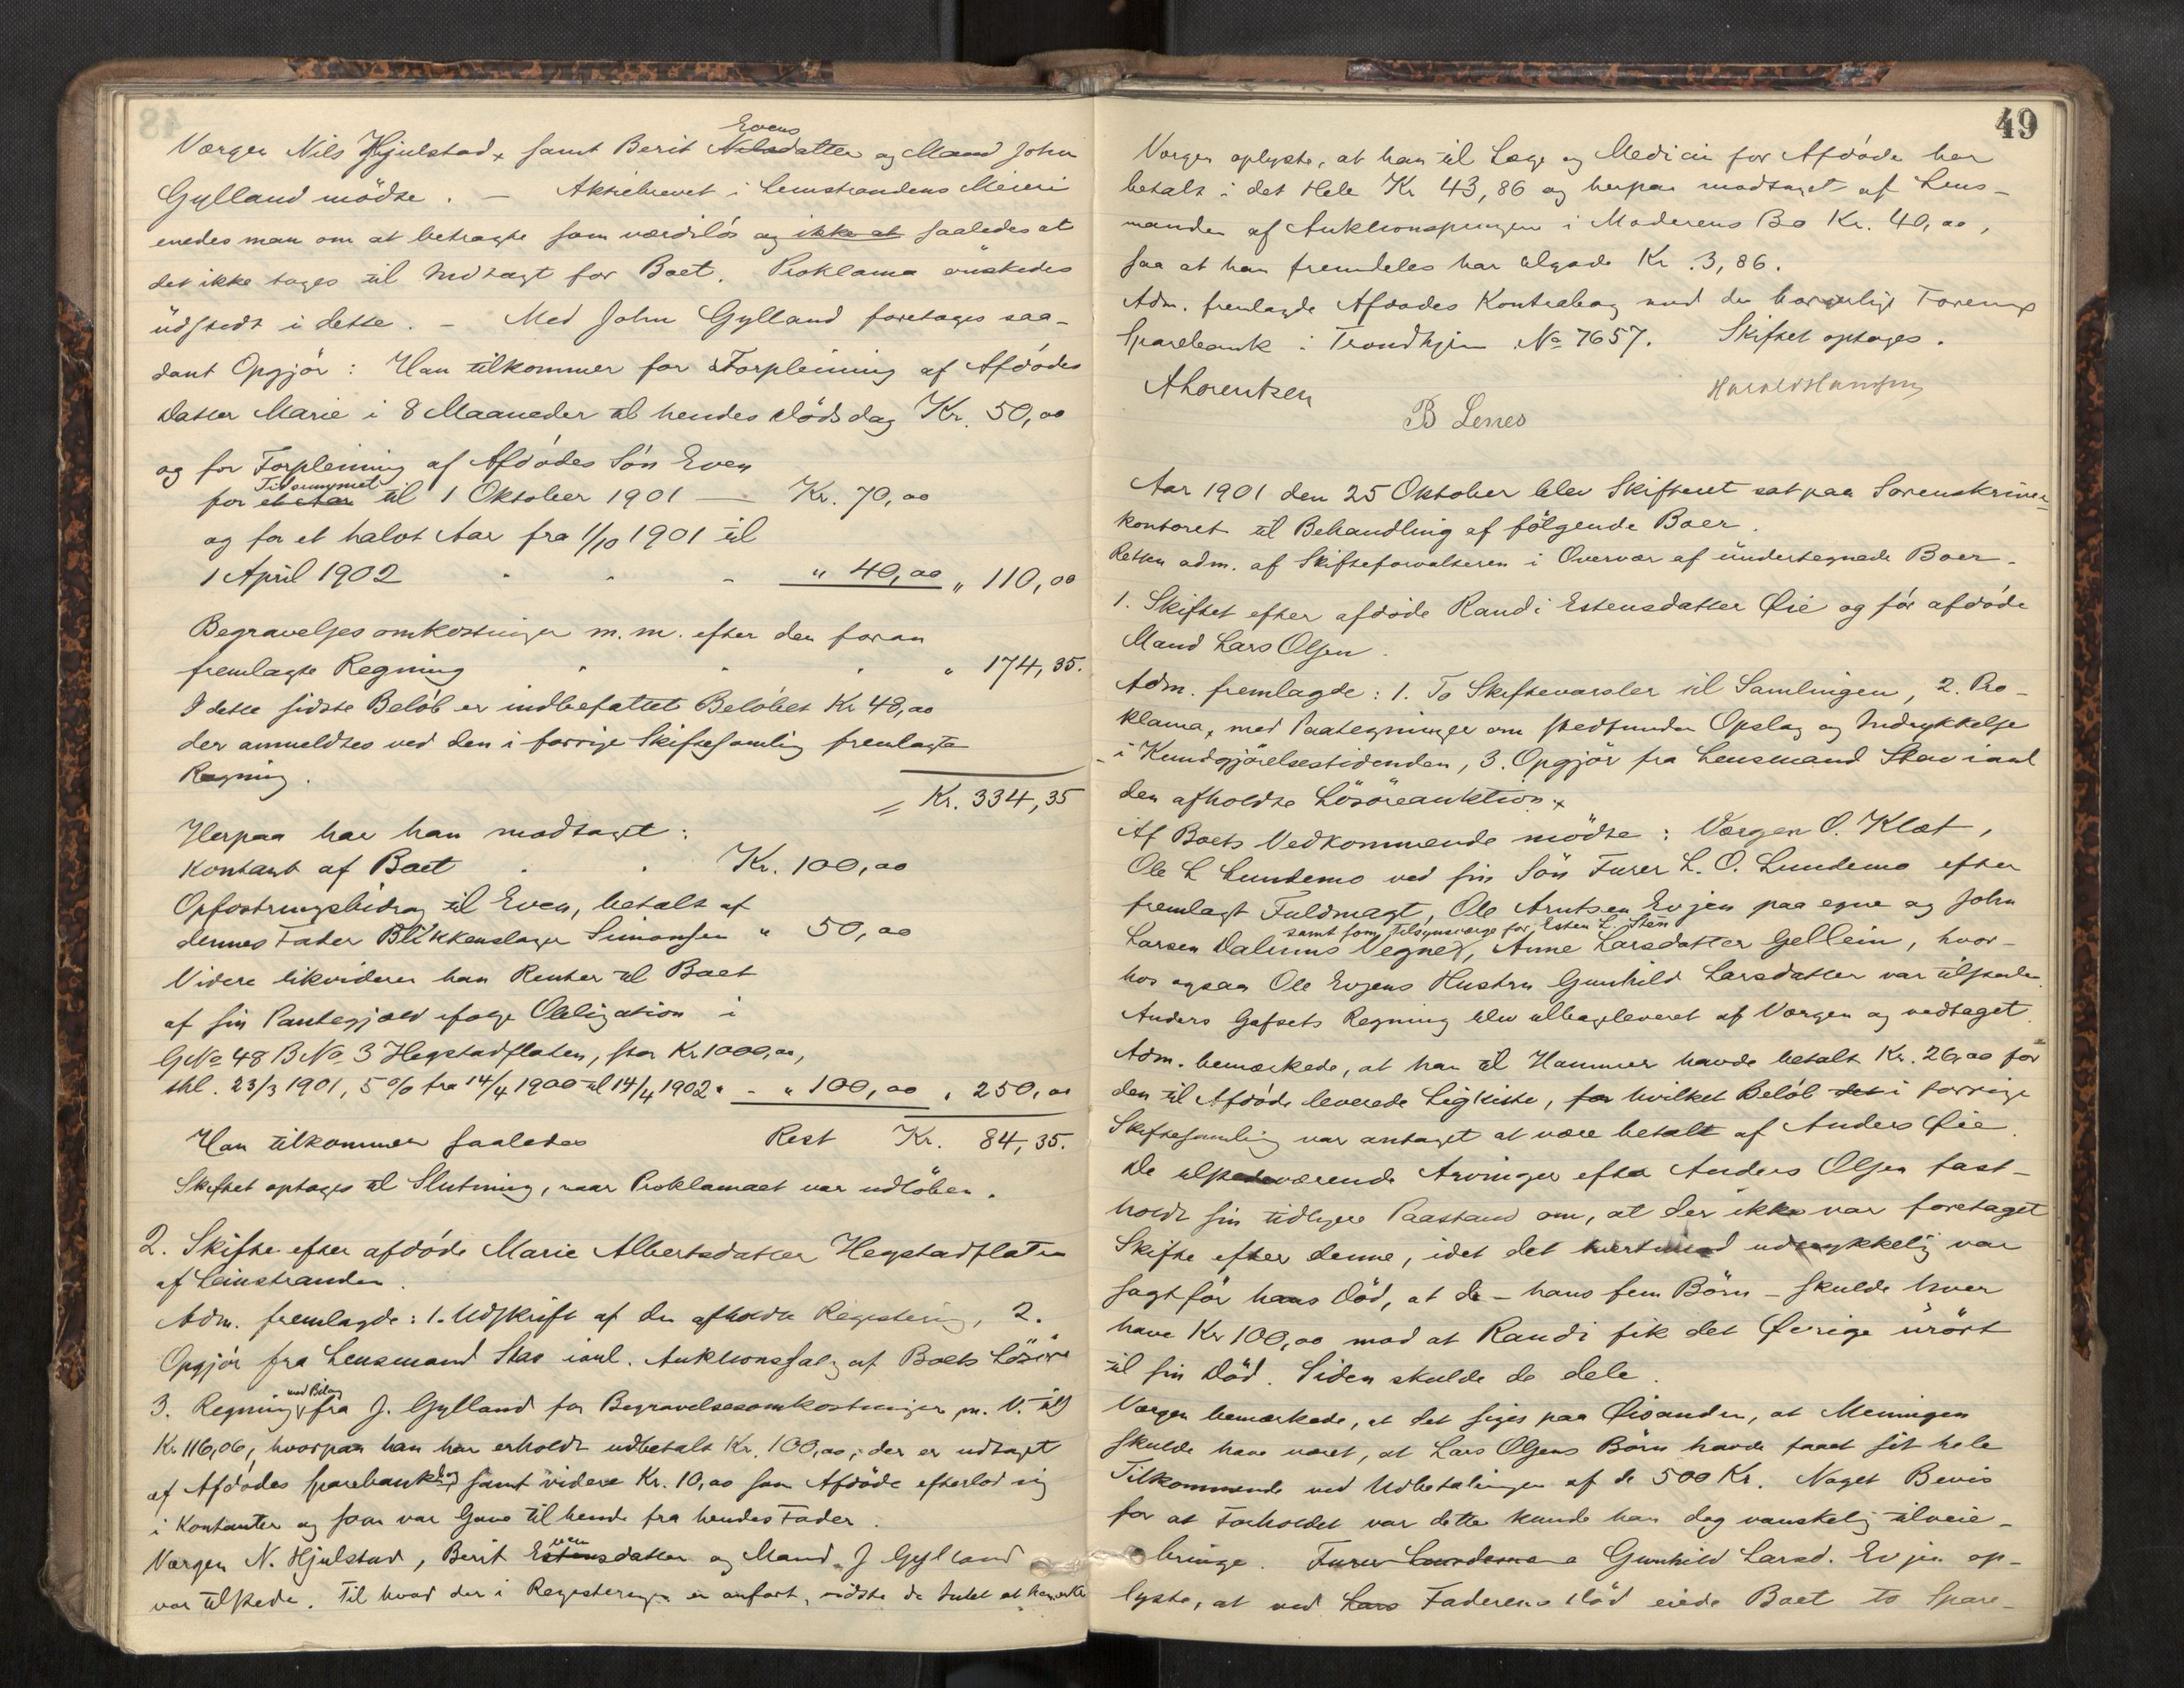 Værgen Nils Hjulstad, samt Berit Nilsdatter Evens og Mand John
Gylland mödte. – Aktiebrevet i Leinstrandens Meieri
enedes man om at betragte som værdilös og ikke at saaledes at
det ikke tages til Indtægt for Boet. Proklama önskedes
üdstedt i dette. – Med John Gylland foretages saa-
dant Opgjör: Han tilkommer for Forpleining af Afdödes
Datter Marie i 8 Maaneder til hendes Dödsdag Kr. 50,00
og for Forpleining af Afdödes Sön Even
for et Aar Tidsrummet til 1 Oktober 1901 — Kr. 70,00
og for et halvt Aar fra 1/10 1901 til
1 April 1902 " 40,00 " 110,00
Begravelsesomkostninger m.m. efter den foran
fremlagte Regning " 174,35.
I dette sidste Belöb er indbefattet Belöbet Kr 48,00
der anmeldtes ved den i forrige Skiftesamling fremlagte
Regning.
Kr. 334,35
Herpaa har han modtaget:
Kontant af Boet Kr. 100,00
Opfostringsbidrag til Even, betalt af
dennes Fader Blikkenslager Simonsen " 50,00
Videre likviderer han Renter til Boet
af sin Pantegjæld ifölge Obligation i
GNo 48 BNo 3 Hegstadflaten, stor Kr 1000,00,
thl. 23/3 1901, 5 % fra 14/4 1900 til 14/4 1902 " 100,00 " 250,00
Han tilkommer saaledes Rest Kr. 84,35.
Skiftet optages til Slutning, naar Proklamaet var udlöben.
2. Skifte efter afdöde Marie Albertsdatter Hegstadflaten
af Leinstranden.
Adm. fremlagde: 1. Udskrift af den afholdte Registering, 2.
Opgjör fra Lensmand Stav i anl. Auktionssalg af Boets Lösöre
3. Regning med Bilag fra J. Gylland for Begravelsesomkostninger m. V. til
Kr 116,06, hvorpaa han har erholdt udbetalt Kr. 100,00, der er udtaget
af Afdödes Sparebankbog samt videre Kr. 10,00 som Afdöde efterlod sig
i Kontanter og som var Gave til hende fra hendes Fader.
Værgen N. Hjulstad, Berit Estensdatter Even og Mand J Gylland
var tilstede. Til hvad der i Registeringen er anfört, vidste de Intet at bemærke
49
Værgen oplyste, at han til Læge og Medicin for Afdöde har
betalt i det Hele Kr 43,86 og herpaa modtaget af Lens-
manden af Auktionspengene i Moderens Bo Kr. 40,00,
saa at han fremdeles har tilgode Kr. 3,86.
Adm. fremlagde Afdödes Kontrabog med den borgerlige Forenings
Sparebank i Trondhjem No 7657. Skiftet optages.
A Lorentzen
B Lenes
Harald Hansen
Aar 1901 den 25 Oktober blev Skifteret sat paa Sorenskriver-
kontoret til Behandling af fölgende Boer.
Retten adm. af Skifteforvalteren i Overvær af ündertegnede Boer.
1. Skiftet efter afdöde Randi Estensdatter Öie og för afdöde
Mand Lars Olsen.
Adm. fremlagde: 1. To Skiftevarsler til Samlingen, 2. Pro-
klama, med Paategninger om stedfunden Opslag og Indrykkelse
i Kundgjörelsestidenden, 3. Opgjör fra Lensmand Stav i anl
den afholdte Lösöreauktion.
Af Boets Vedkommende mödte: Værgen O. Klæt,
Ole L Lundemo ved sin Sön Furer L. O. Lundemo efter
fremlagt Fuldmagt, Ole Arntsen Evjen paa egne og John
samt som Tilsynsværge for Esten L. Stön
Larsen Dalums Vegne, Anne Larsdatter Gellein, hvor-
hos ogsaa Ole Evjens Hustru Gunhild Larsdatter var tilstede.
Anders Gafsets Regning blev tilbageleveret af Værgen og vedtaget.
Adm. bemærkede, at han til Hammer havde betalt Kr. 26,00 för
den til Afdöde leverede Ligkiste, for hvilket Belöb det i forrige
Skiftesamling var antaget at være betalt af Anders Öie.
De tilstedeværende Arvinger efter Anders Olsen fast-
holdt sin tidligere Paastand om, at der ikke var foretaget
Skifte efter denne, idet det tvertimod udtrykkelig var
sagt för hans Död, at de – hans fem Börn – skulde hver
have Kr 100,00 mod at Randi fik det Övrige ürört
til sin Död. Siden skulde de dele.
Værgen bemærkede, at det siges paa Öisanden, at Meningen
skulde have været, at Lars Olsens Börn havde faaet sit hele
Tilkommende ved Udbetalingen af de 500 Kr. Noget Bevis
for at Forholdet var dette kunde han dog vanskelig tilveie-
bringe. Furer Lundemo Gunhild Larsd. Evjen op-
lyste, at ved Lars Faderens Död eiede Boet to Spare-